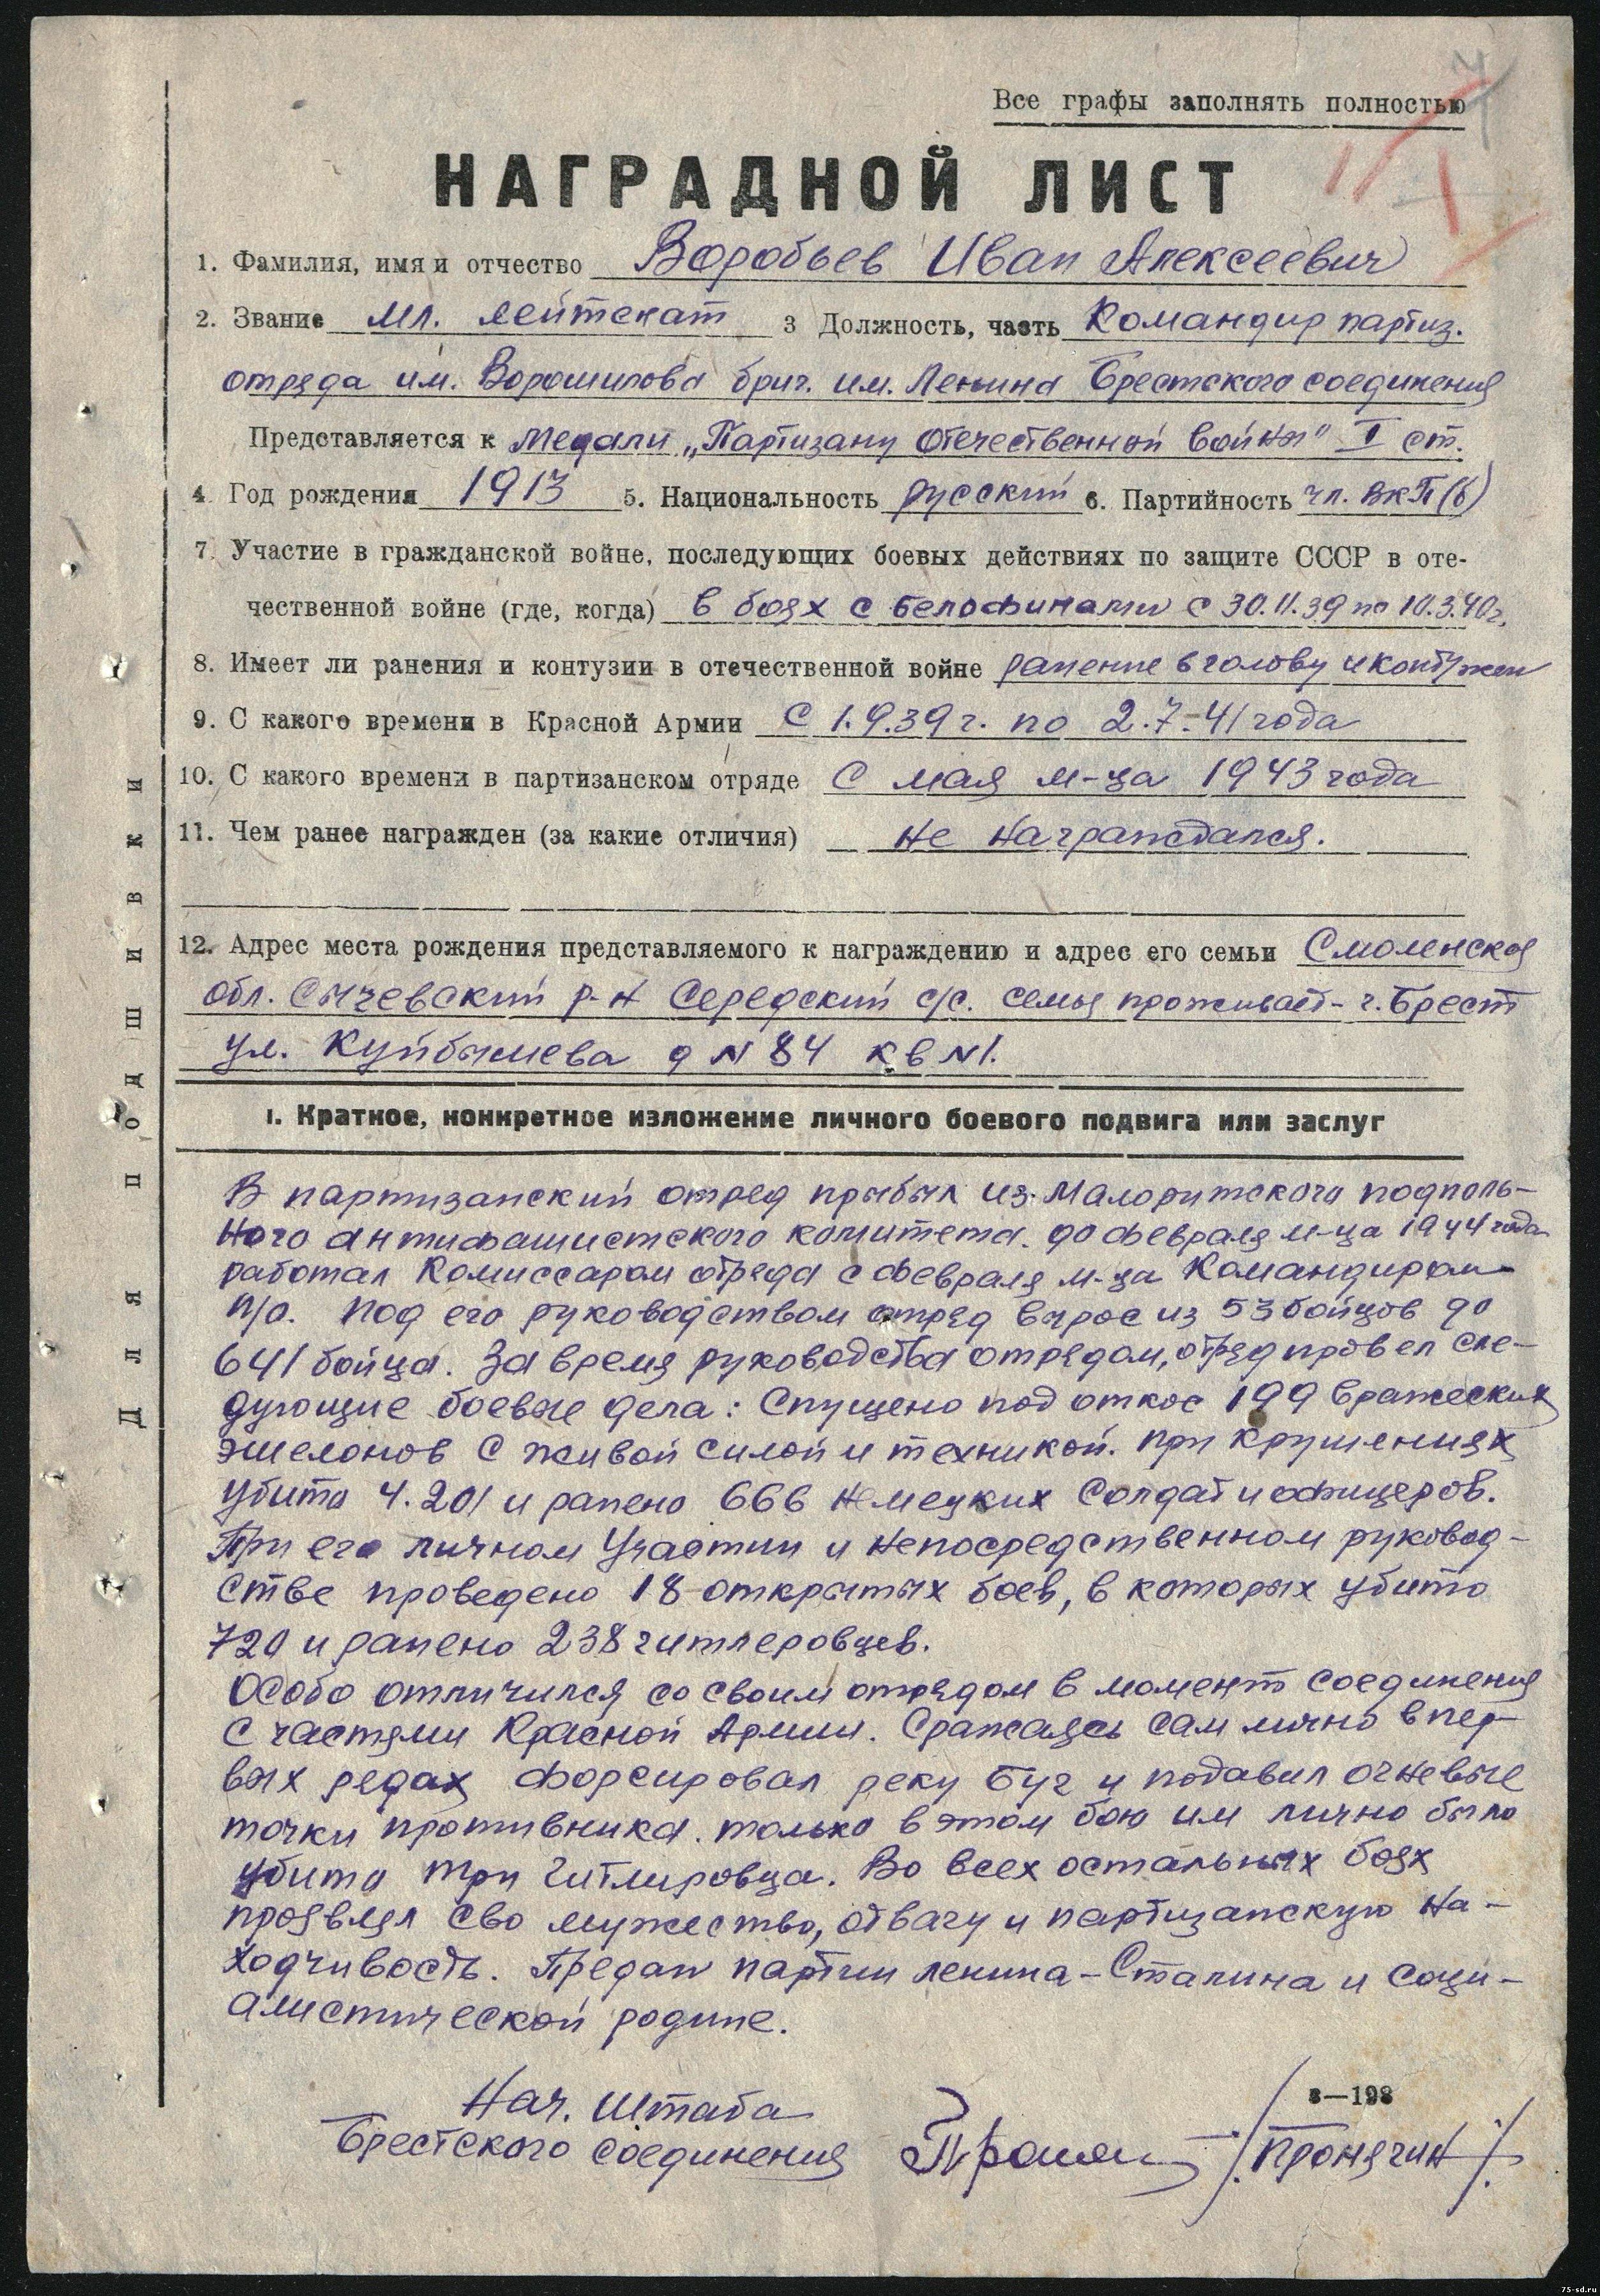 Все графы заполнять полностью
НАГРАДНОЙ ЛИСТ
1. Фамилия, имя и отчество Воробьев Иван Алексеевич
2. Звание мл. лейтенат 3 Должность, часть Командир партиз.
отряда им. Ворошилова бриг. им. Ленина Брестского соединения
Представляется к медали „Партизану Отечественной войны" I ст.
4. Год рождения 1913 5. Национальность русский 6. Партийность чл. ВКП(б)
7. Участие в гражданской войне, последующих боевых действиях по защите СССР в оте-
чественной войне (где, когда) в боях с белофинами с 30.11.39 по 10.3.40г.
8. Имеет ли ранения и контузии в отечественной войне ранение в голову и контужен
9. С какого времени в Красной Армии С 1.9.39 г. по 2.7.-41 года
10. С какого времени в партизанском отряде С мая м-ца 1943 года
11. Чем ранее награжден (за какие отличия) Не награждался.
12. Адрес места рождения представляемого к награждению и адрес его семьи Смоленская
обл. Сычевский р-н Середский с/с. семья проживает - г. Брест
ул. Куйбышева д N 84 кв N1.
Для подшивки
1. Краткое, конкретное изложение личного боевого подвига или заслуг
В партизанский отряд прибыл из Малоритского подполь-
ного антифашистского комитета. до февраля м-ца 1944 года
работал Комиссаром отряда с февраля м-ца Командиром
п/о. Под его руководством отряд вырос из 53 бойцов до
641 бойца. За время руководства отрядом, отряд провел сле-
дующие боевые дела: Спущено под откос 199 вражеских
эшелонов с живой силой и техникой. При крушениях
убито 4.201 и ранено 666 немецких солдат и офицеров.
При его личном участии и непосредственном руковод-
стве проведено 18 открытых боев, в которых убито
720 и ранено 238 гитлеровцев.
Особо отличился со своим отрядом в момент соединения
с частями Красной Армии. Сражаясь сам лично в пер-
вых рядах форсировал реку Буг и подавил огневые
точки противника. только в этом бою им лично было
убито три гитлировца. Во всех остальных боях
проявлял сво мужество, отвагу и партизанскую на-
ходчивость. Предан партии ленина-Сталина и соци-
алистической родине.
Нач. Штаба
Брестского соединения /Пронягин/.
з—198
75-sd.ru